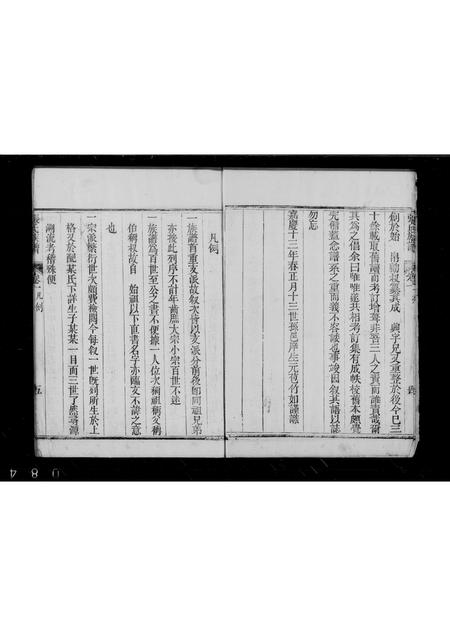 創於始
與字兄又重整於後今已三
十餘載取舊譜而考訂增葺非吾二人之責而誰責哉爾
其為之倡余曰唯唯遂共相考訂集有成帙較舊本頗覺
先備蓋念譜系之重而義不容諉也事竣因叙其譜以誌
勿忘
嘉慶十三年春正月十三世孫
凡例
一族譜首重支派故叙次皆以支派分前後即同祖兄弟
亦按此列序不計年齒照大宗小宗百世不迷
一族譜為百世至公之書不便據一人位次稱祖稱父稱
伯稱叔故自 始祖以下直書名字亦臨文不諱之意
也
一宗派繁衍世次頗費檢閱今每叙一世既列所生於上
格又於配某氏下詳生子某某一目而三世了然尋源
溯流考稽殊便
卷一 凡例
五
0 8 4